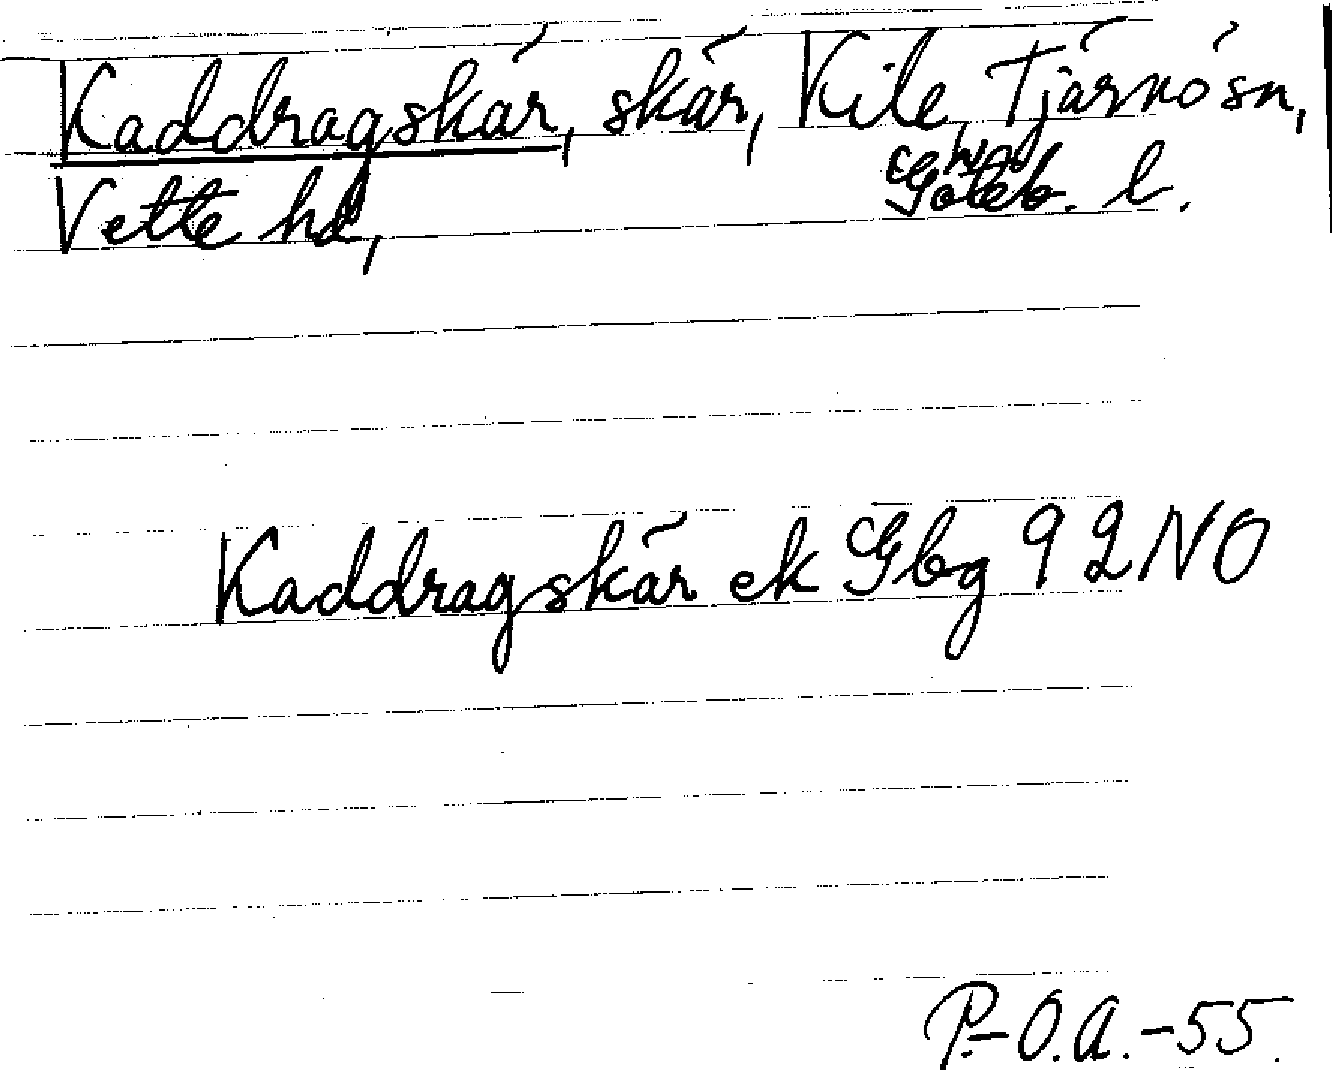 Kaddragskär, skär, Kile, Tjärnö sn,
Vette hd, Göteb. l.
Kaddragskär ek Gbg 92NO
P.-O.A.-55.